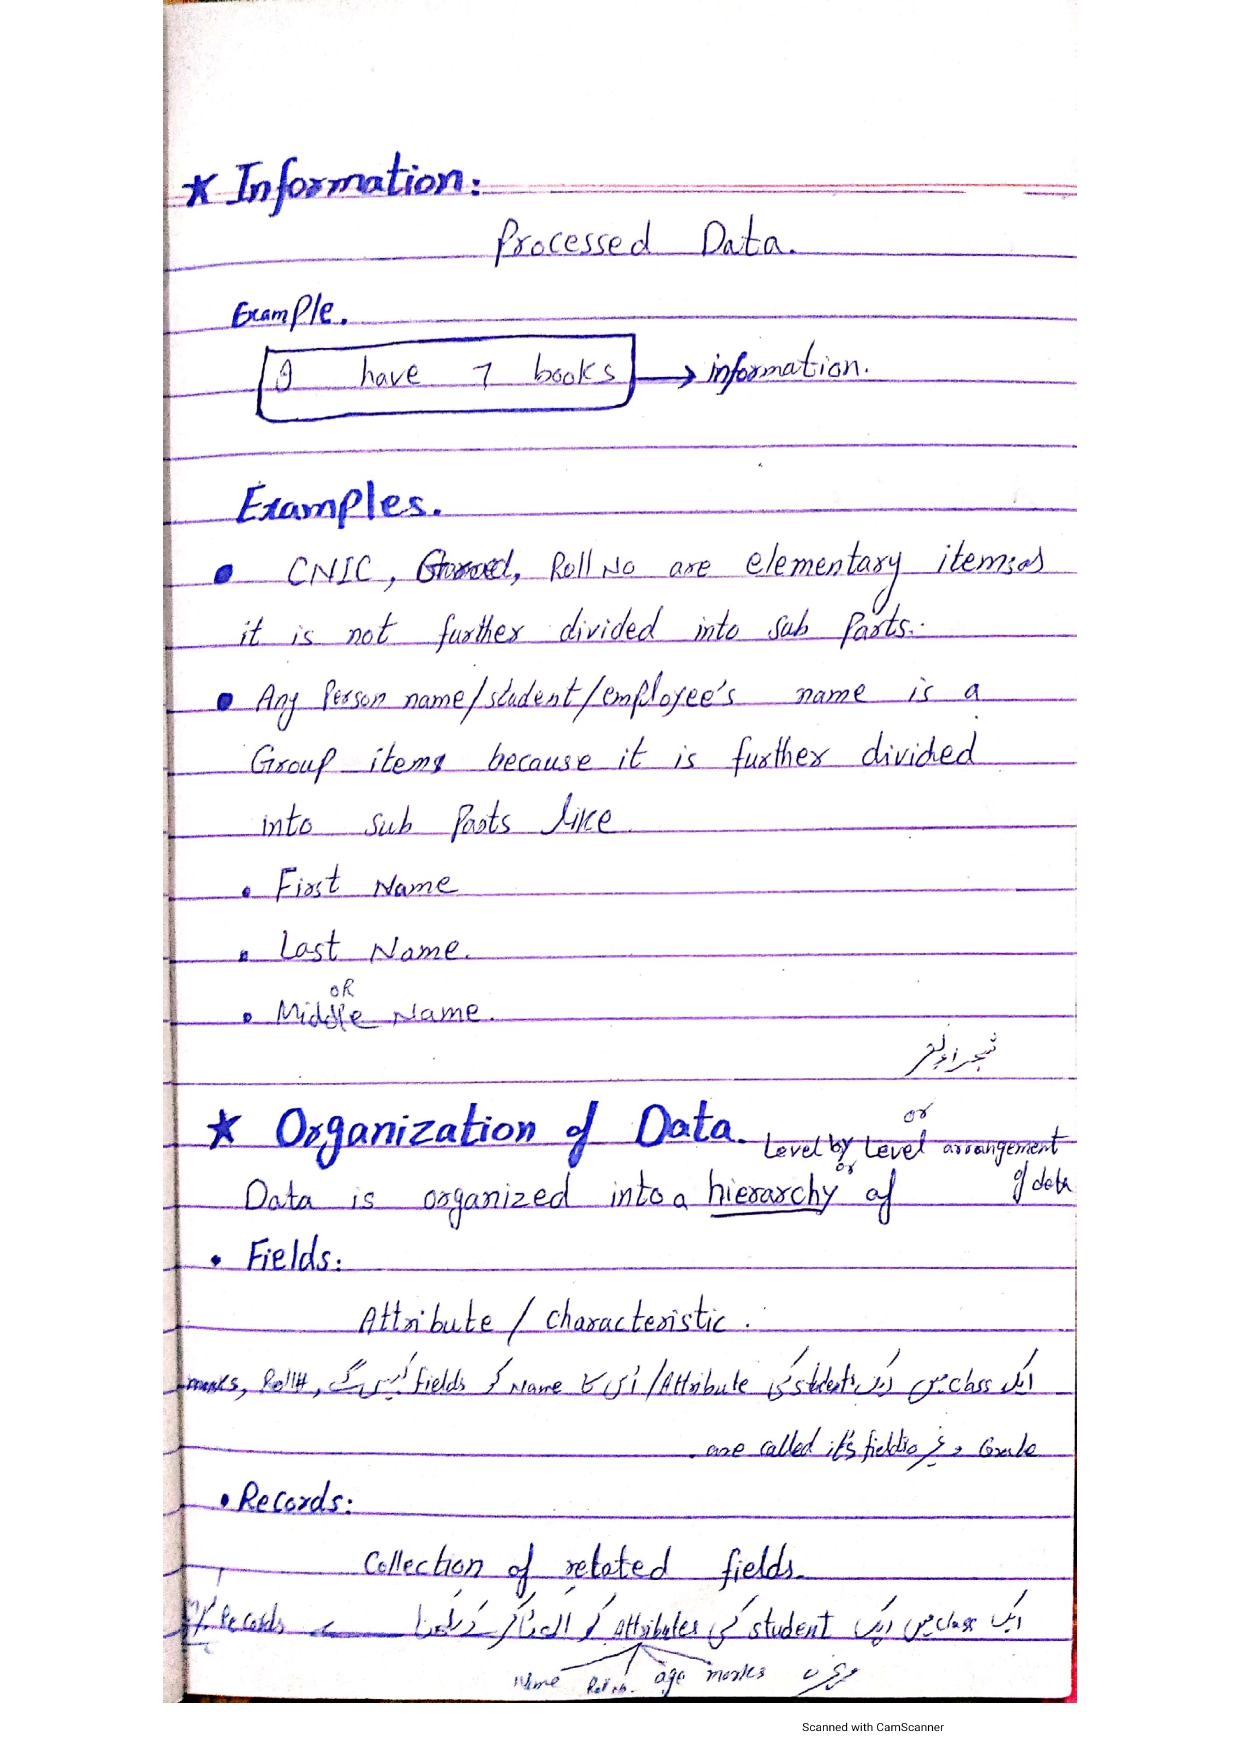 ★ Information:
Processed Data.
Example.
I have 7 books → information.
Examples.
• CNIC, Roll No are elementary items
it is not further divided into sub Parts.
• Any Person name/student/employee's name is a
Group items because it is further divided
into sub Parts like
• First Name
• Last Name.
OR
• Middle Name.
★ Organization of Data. or
Level by Level arrangement of data
or
Data is organized into a hierarchy of
• Fields:
Attribute / characteristic.
ایک class میں ایک student کی Attribute/ اُس کا Name کو fields کہیں گے, Roll#, marks
Grade وغیرہ are called it's fields.
• Records:
Collection of related fields.
ایک class میں ایک student کی Attributes کو Records
Name Roll no. age marks وغیرہ
Scanned with CamScanner